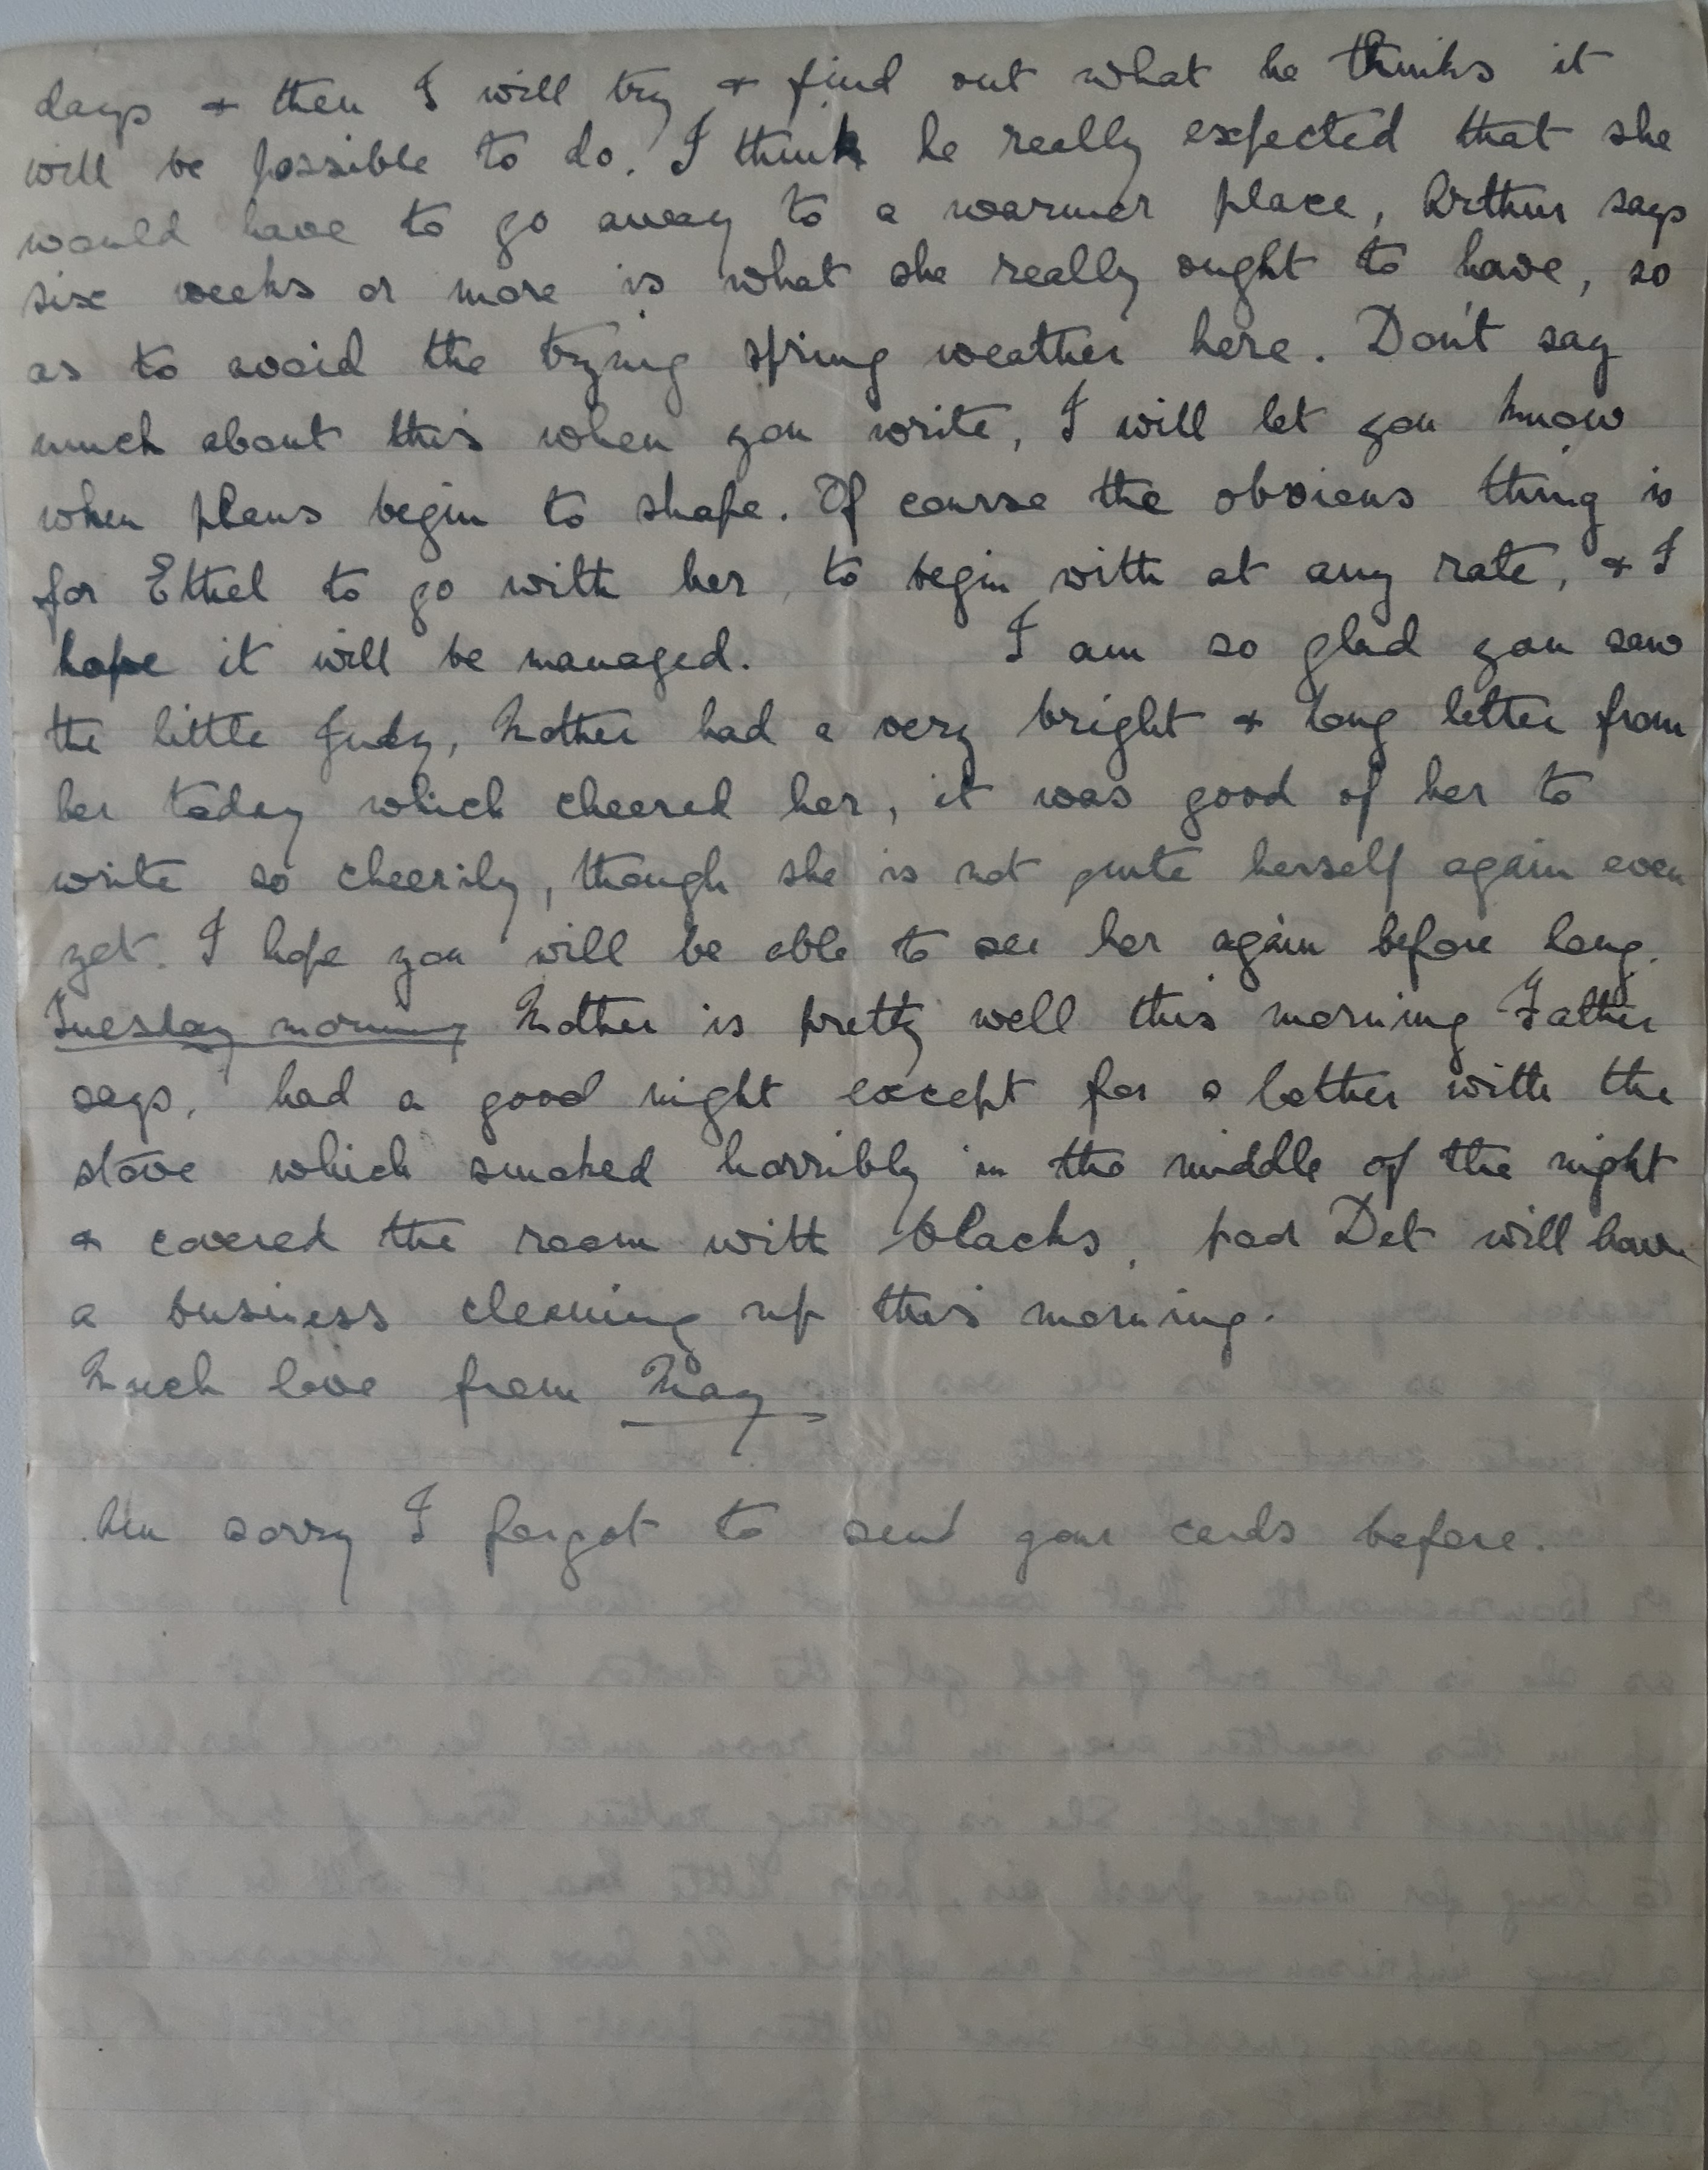 days & then I will try & find out what he thinks it
will be possible to do. I think he really expected that she
would have to go away to a warmer place, Arthur says
six weeks or more is what she really ought to have, so
as to avoid the trying spring weather here. Don't say
much about this when you write, I will let you know
when plans begin to shape. Of course the obvious thing is
for Ethel to go with her, to begin with at any rate, & I
hope it will be managed. I am so glad you saw
the little Judy, Mother had a very bright & long letter from
her today which cheered her, it was good of her to
write so cheerily, though she is not quite herself again even
yet. I hope you will be able to see her again before long.
Tuesday morning Mother is pretty well this morning Father
says, had a good night except for a bother with the
stove which smoked horribly in the middle of the night
& covered the room with blacks, poor Det will have
a business cleaning up this morning.
Much love from May
Am sorry I forgot to send your cards before.